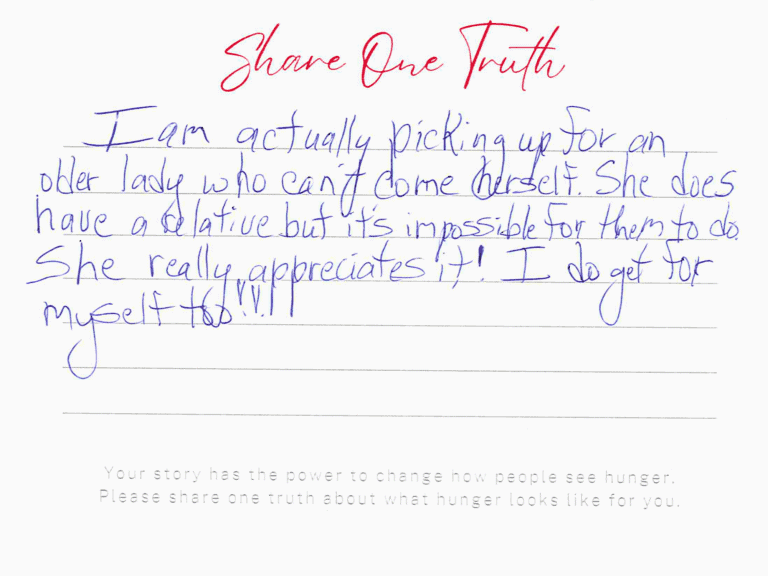 Share One Truth
I am actually picking up for an
older lady who can't come herself. She does
have a relative but it's impossible for them to do.
She really appreciates it! I do get for
myself too!!!!
Your story has the power to change how people see hunger.
Please share one truth about what hunger looks like for you.